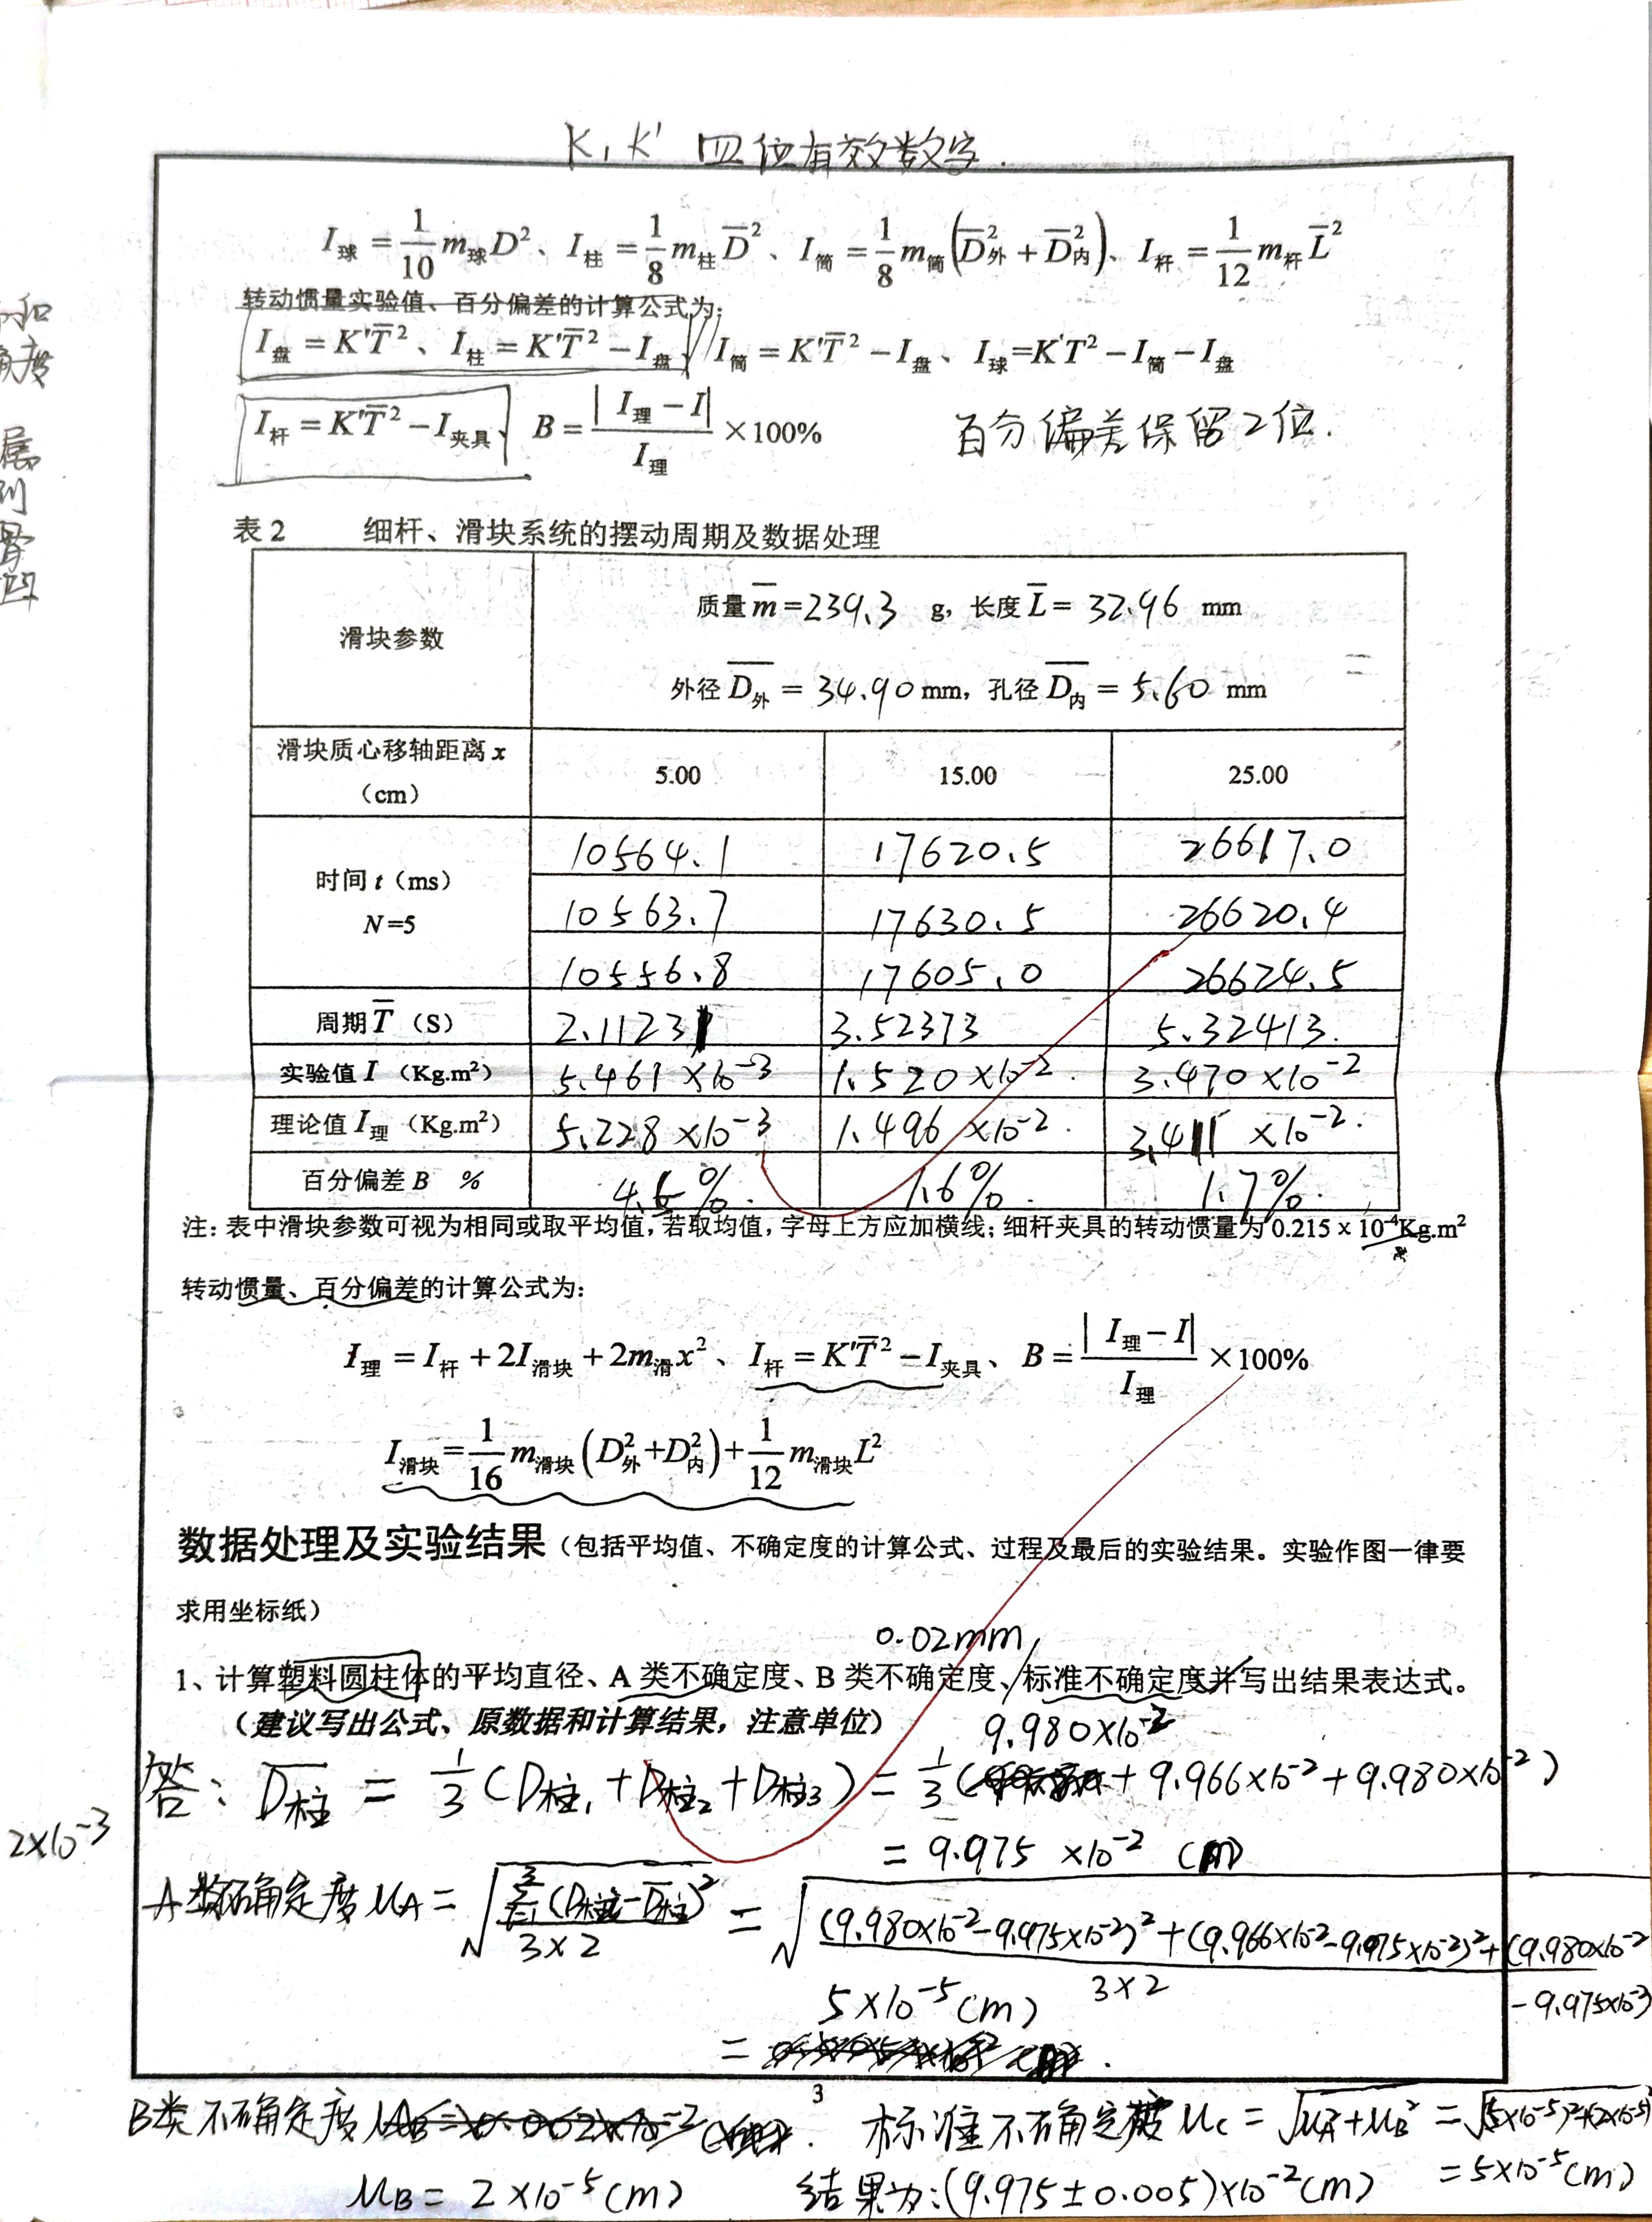 K, K' 四位有效数字.
I球 = 1/10 m球D²、I柱 = 1/8 m柱D̄²、I筒 = 1/8 m筒(D̄外² + D̄内²)、I杆 = 1/12 m杆L̄²
转动惯量实验值、百分偏差的计算公式为:
I盘 = K'T̄²、I柱 = K'T̄² − I盘、I筒 = K'T̄² − I盘、I球=K'T² − I筒 − I盘
I杆 = K'T̄² − I夹具、 B = |I理 − I| / I理 ×100% 百分偏差保留2位.
表 2 细杆、滑块系统的摆动周期及数据处理
滑块参数 质量 m̄ = 239.3 g, 长度 L̄ = 32.96 mm
外径 D̄外 = 34.90 mm, 孔径 D̄内 = 5.60 mm
滑块质心移轴距离 x (cm) 5.00 15.00 25.00
时间 t (ms) N=5 10564.1 17620.5 26617.0
10563.7 17630.5 26620.4
10556.8 17605.0 26624.5
周期 T̄ (S) 2.11231 3.52373 5.32413.
实验值 I (Kg.m²) 5.461 ×10⁻³ 1.520 ×10⁻². 3.470 ×10⁻²
理论值 I理 (Kg.m²) 5.228 ×10⁻³ 1.496 ×10⁻². 3.411 ×10⁻².
百分偏差 B % 4.5%. 1.6%. 1.7%.
注: 表中滑块参数可视为相同或取平均值, 若取均值, 字母上方应加横线; 细杆夹具的转动惯量为 0.215 × 10⁻⁴Kg.m²
转动惯量、百分偏差的计算公式为:
I理 = I杆 + 2I滑块 + 2m滑x²、I杆 = K'T̄² − I夹具、 B = |I理 − I| / I理 ×100%
I滑块 = 1/16 m滑块(D外²+D内²) + 1/12 m滑块L²
数据处理及实验结果 (包括平均值、不确定度的计算公式、过程及最后的实验结果。实验作图一律要
求用坐标纸)
0.02mm
1、计算塑料圆柱体的平均直径、A 类不确定度、B 类不确定度、标准不确定度并写出结果表达式。
(建议写出公式、原数据和计算结果, 注意单位)
9.980×10⁻²
答: D̄柱 = 1/3 (D柱₁ + D柱₂ + D柱₃) = 1/3 ( + 9.966×10⁻² + 9.980×10⁻²)
2×10⁻³
= 9.975 ×10⁻² (m)
A类不确定度 μA = √(Σ(D柱−D̄柱)² / 3×2) = √((9.980×10⁻²−9.975×10⁻²)² + (9.966×10⁻²−9.975×10⁻²)² + (9.980×10⁻²
−9.975×10⁻²) / 3×2
= 5×10⁻⁵ (m)
3
B类不确定度 标准不确定度 μC = √μA²+μB² = √(5×10⁻⁵)²+(2×10⁻⁵)²
μB = 2×10⁻⁵ (m) 结果为: (9.975±0.005)×10⁻² (m) = 5×10⁻⁵ (m)